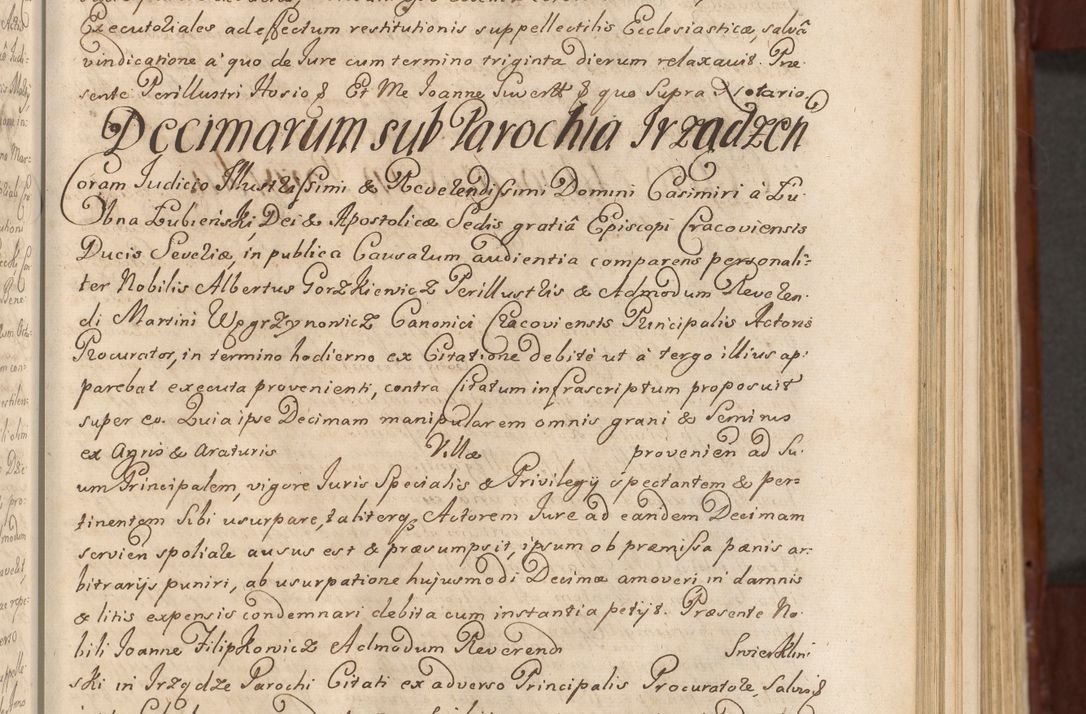 Executoriales ad effectum restitutionis suppellectilis Ecclesiasticæ, salvâ
vindicatione à quo de Iure cum termino triginta dierum relaxavit. Præ-
sente Perillustri Hosio & Et Me Ioanne Suwertt & quo Supra Notario
Decimarum sub Parochia Irządzeń
Coram Iudicio Illustrissimi & Reverendissimi Domini Casimiri à Łu-
bna Łubieński, Dei & Apostolicæ Sedis gratiâ Episcopi Cracoviensis
Ducis Severiæ, in publica Causarum audientia comparens personali-
ter Nobilis Albertus Gorzkiewicz Perillustris & Admodum Reveren-
di Martini Węgrzynowicz Canonici Cracoviensis Principalis Actoris
Procurator, in termino hodierno ex Citatione debitè ut à tergo illius ap-
parebat executa provenienti, contra Citatum infrascriptum proposuit
super eo. Quia ipse Decimam manipularem omnis grani & Seminis
ex Agris & Araturis Villæ provenien ad Su-
um Principalem, vigore Iuris Specialis & Privilegij spectantem & per-
tinentem sibi usurpare, taliterq Actorem Iure ad eandem Decimam
servien spoliare ausus est & præsumpsit, ipsum ob præmissa pænis ar-
bitrarijs puniri, ab usurpatione hujusmodi Decimæ amoveri in damnis
& litis expensis condemnari debita cum instantia petijt. Præsente No-
bili Ioanne Filipkowicz Admodum Reverendi Swierklini
ski in Irządze Parochi Citati ex adverso Principalis Procuratore, Salvis &